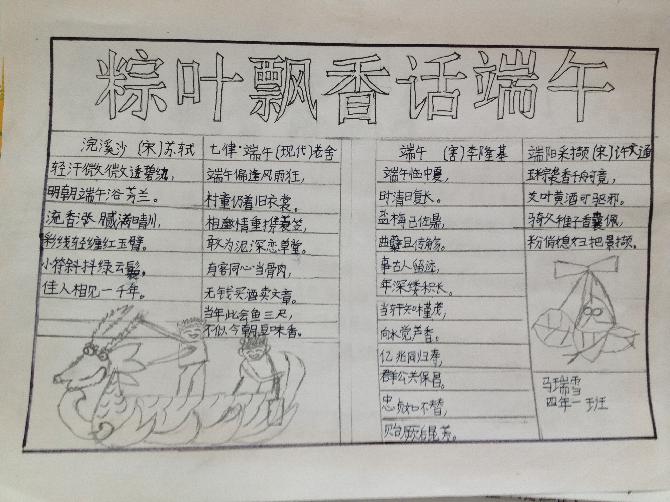 粽叶飘香话端午
浣溪沙 (宋)苏轼
轻汗微微透碧纨,
明朝端午浴芳兰。
流香涨腻满晴川,
彩线轻缠红玉臂,
小符斜挂绿云鬟,
佳人相见一千年。
七律·端午(现代)老舍
端午偏逢风雨狂,
村童仍着旧衣裳。
相邀情重携蓑笠,
敢为泥深恋草堂。
有客同心当骨肉,
无钱买酒卖文章。
当年此会鱼三尺,
不似今朝豆味香。
端午 (唐)李隆基
端午临中夏,
时清日复长。
盐梅已佐鼎,
曲糵且传觞。
事古人留迹,
年深缕积长。
当轩知槿茂,
向水觉芦香。
亿兆同归寿,
群公共保昌。
忠贞如不替,
贻厥后昆芳。
端阳采撷(宋)许文通
玉粽袭香千舸竞,
艾叶黄酒可驱邪。
骑父稚子香囊佩,
粉俏媳妇把景撷。
马瑞雪
四年一班